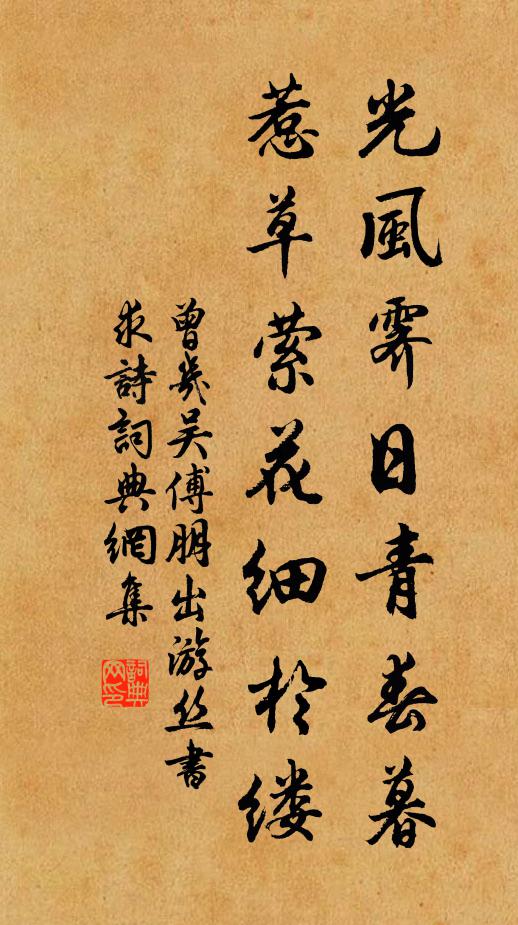 光風霽日青春暮
惹草縈花細於縷
曾幾吴傅朋出游丝書
求詩詞典網集
詞典网印